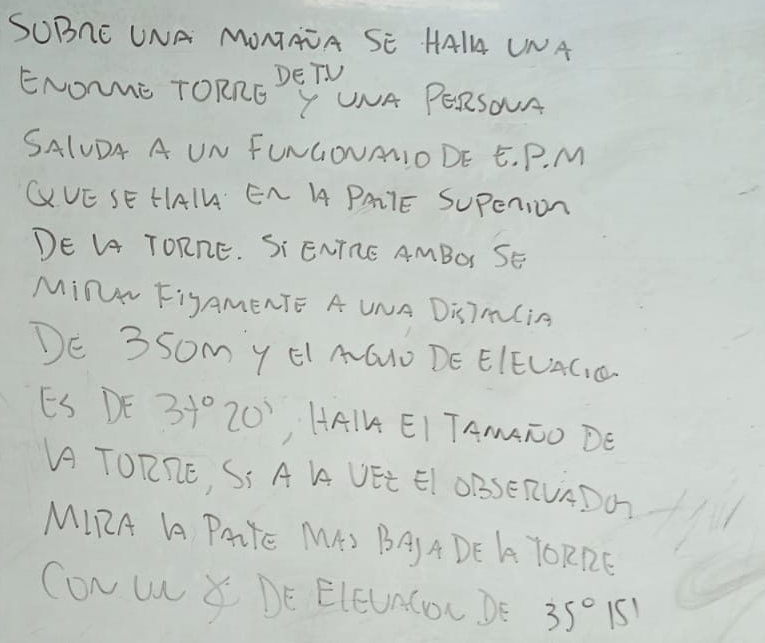 SOBRE UNA MONTAÑA SE HALLA UNA
ENORME TORRE DE T.V Y UNA PERSONA
SALUDA A UN FUNCIONARIO DE E.P.M
QUE SE HALLA EN LA PARTE SUPERIOR
DE LA TORRE. SI ENTRE AMBOS SE
MIRAN FIJAMENTE A UNA DISTANCIA
DE 350m Y EL ANGULO DE ELEVACIO
ES DE 37° 20', HALLA EL TAMAÑO DE
LA TORRE, SI A LA VEZ EL OBSERVADOR
MIRA LA PARTE MAS BAJA DE LA TORRE
CON UN ∢ DE ELEVACION DE 35° 15'